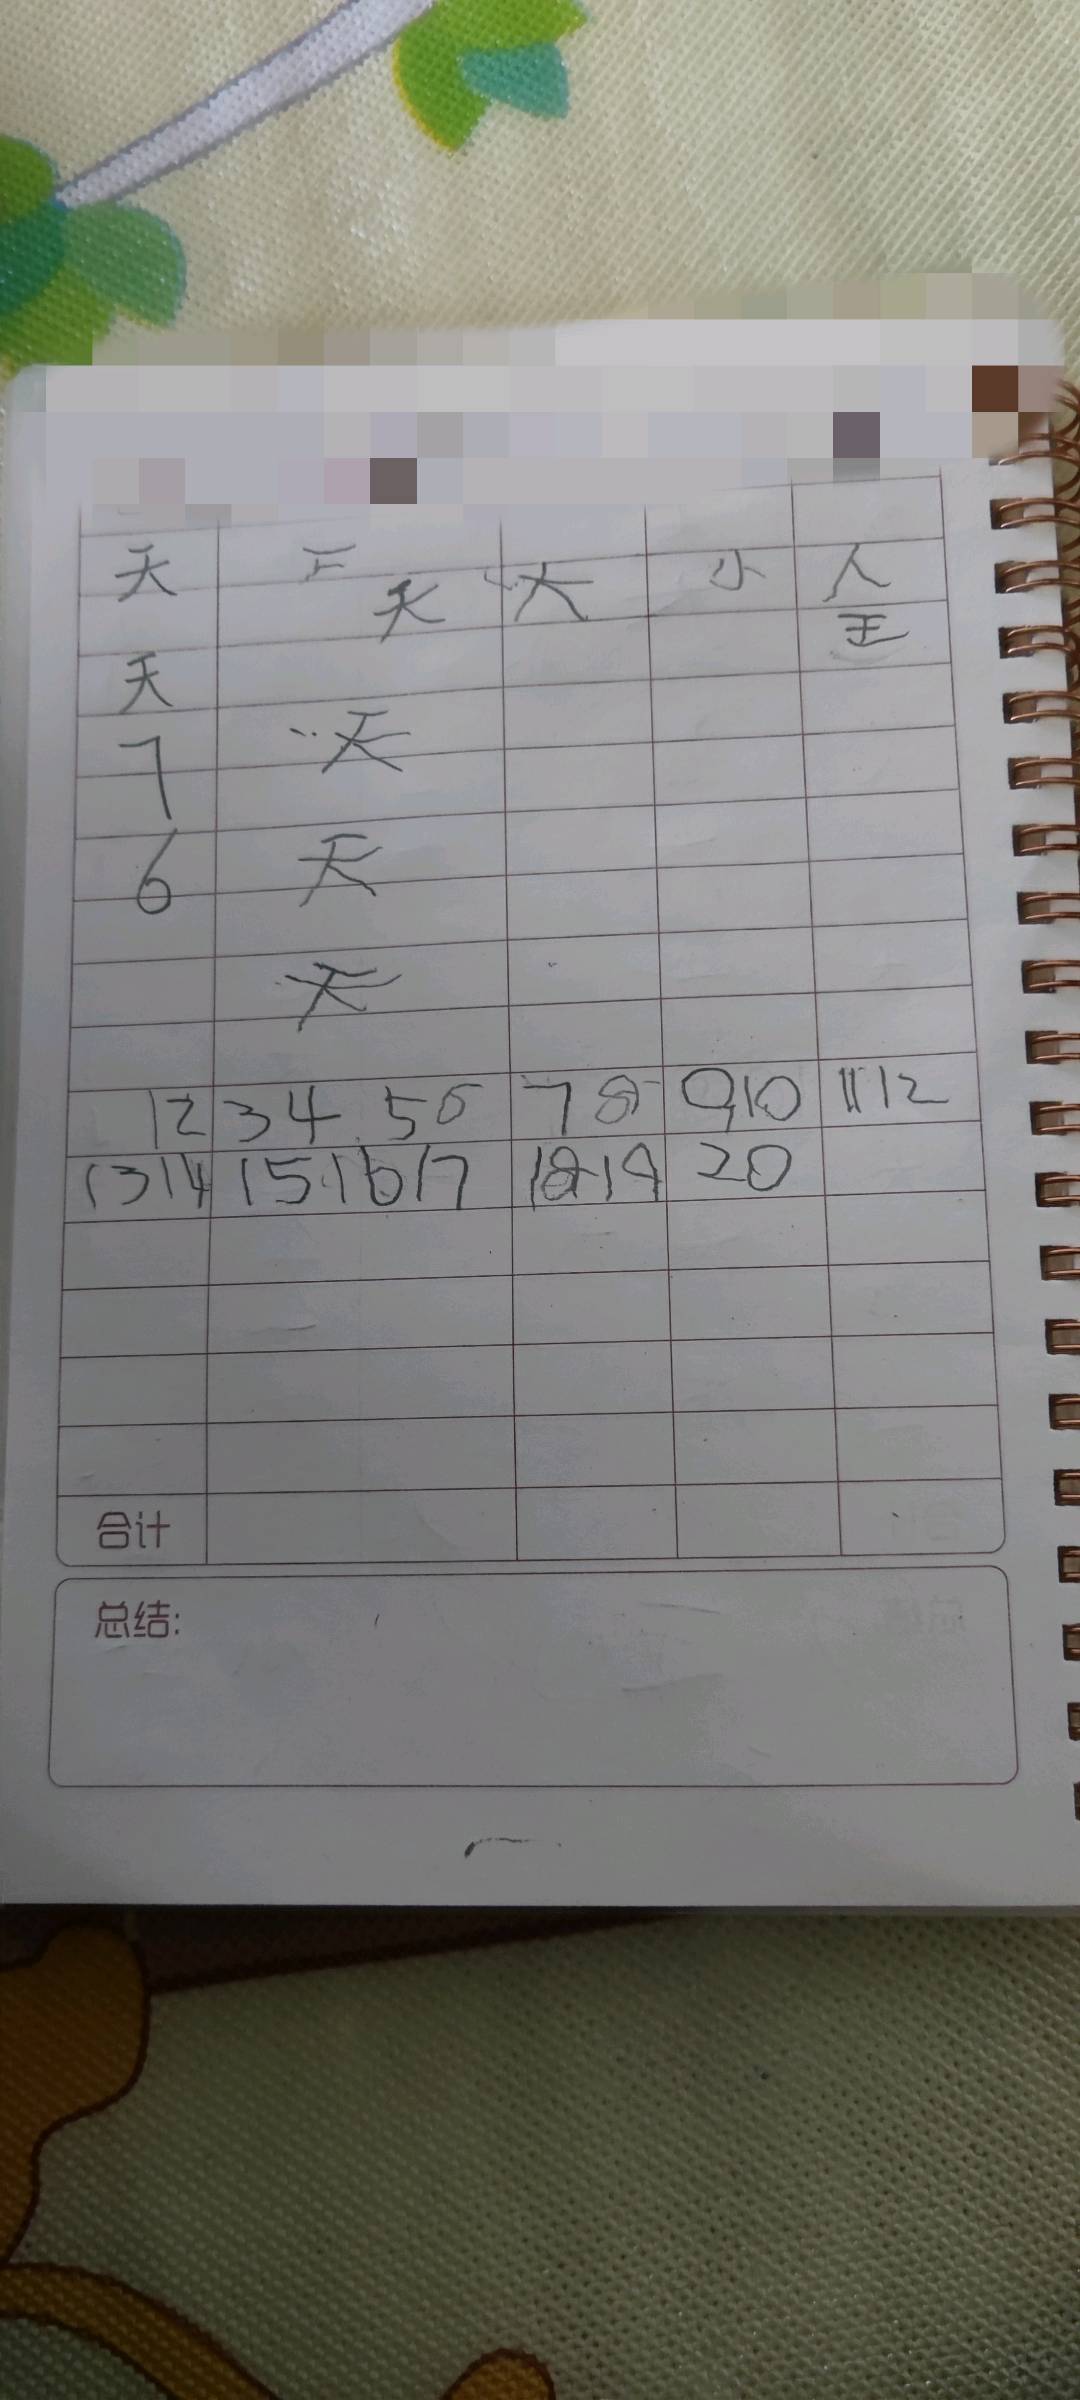 天 天 大 小 人
王
天
7 天
6 天
天
12 34 56 78 910 1112
1314 151617 1819 20
合计
总结: